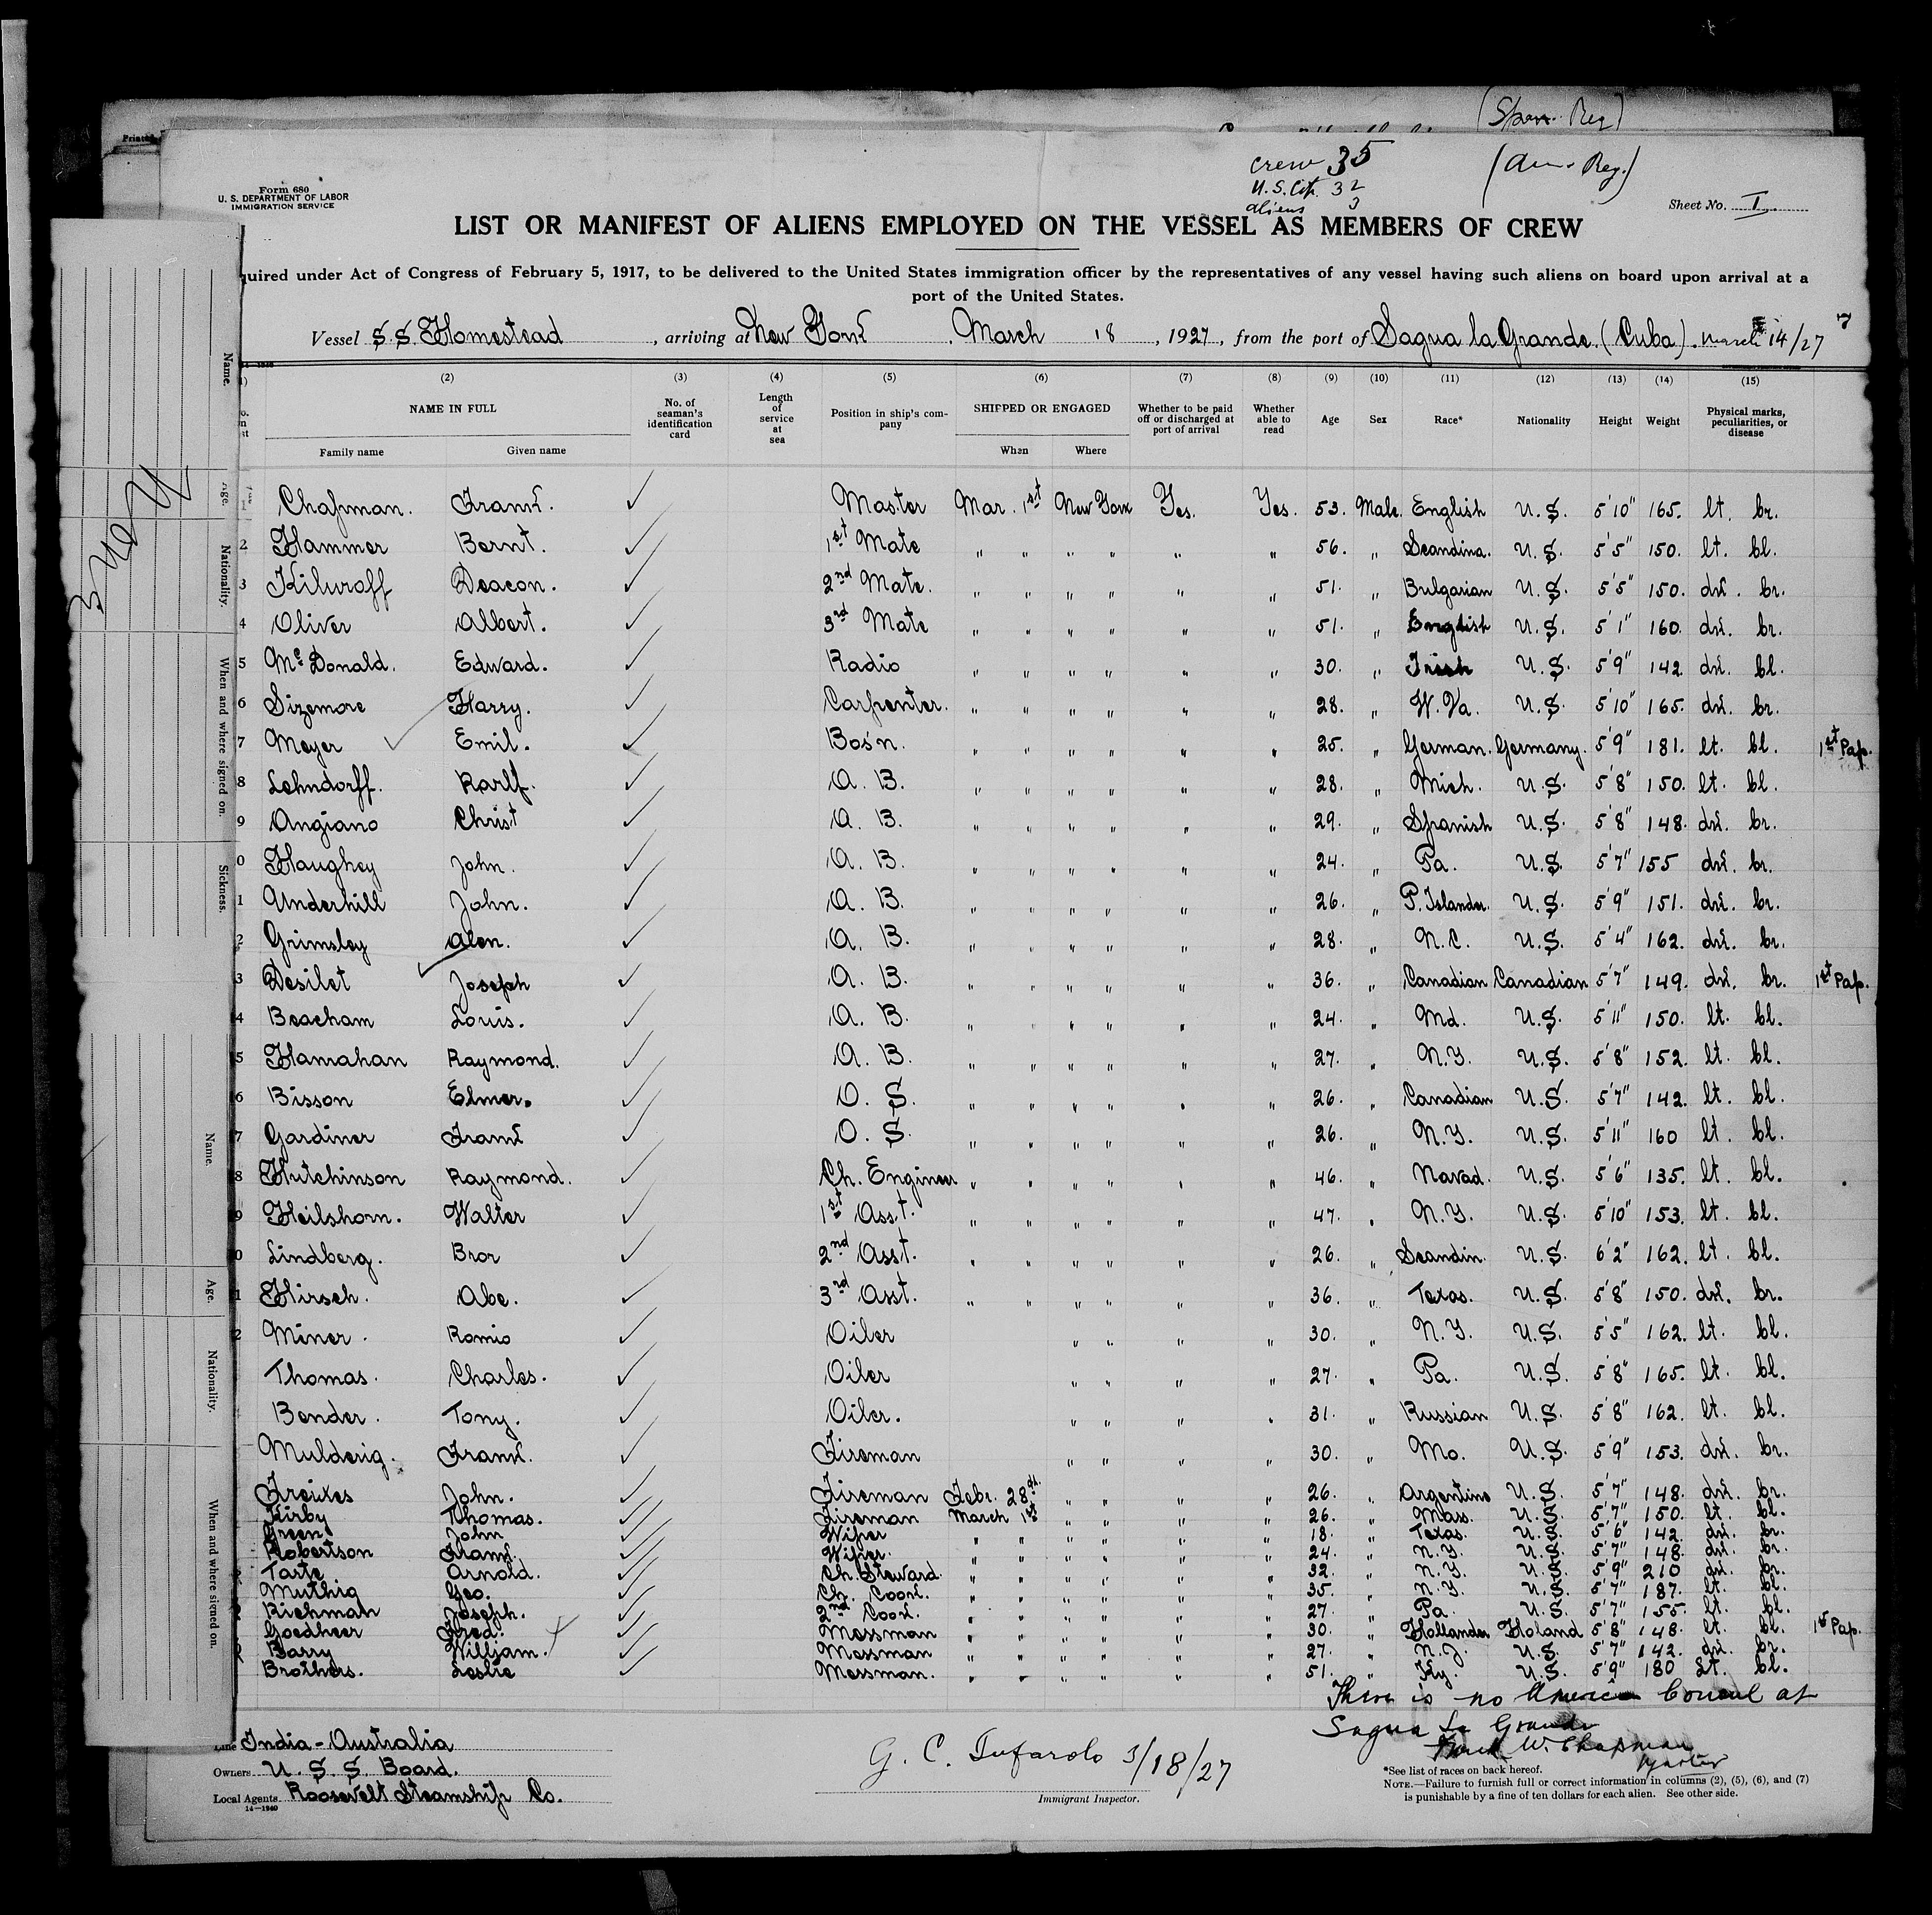 (Span. Reg)
Printed
crew 35
(Am. Reg.)
U.S. Cit. 32
aliens 3
Form 680
U. S. DEPARTMENT OF LABOR
IMMIGRATION SERVICE
Sheet No. I
LIST OR MANIFEST OF ALIENS EMPLOYED ON THE VESSEL AS MEMBERS OF CREW
quired under Act of Congress of February 5, 1917, to be delivered to the United States immigration officer by the representatives of any vessel having such aliens on board upon arrival at a
port of the United States.
Vessel S.S. Homestead, arriving at New York. March 18, 1927, from the port of Sagua la Grande. (Cuba). March 14/27
(2) (3) (4) (5) (6) (7) (8) (9) (10) (11) (12) (13) (14) (15)
NAME IN FULL
Family name Given name
No. of seaman's identification card
Length of service at sea
Position in ship's company
SHIPPED OR ENGAGED
When Where
Whether to be paid off or discharged at port of arrival
Whether able to read
Age Sex Race* Nationality Height Weight
Physical marks, peculiarities, or disease
1 Chapman. Frank. Master Mar. 1st New York Yes. Yes. 53. Male. English U.S. 5'10" 165. lt. br.
2 Hammer Bernt. 1st Mate " " " " " " 56. " Scandina. U.S. 5'5" 150. lt. bl.
3 Kilwroff Deacon. 2nd Mate. " " " " " " 51. " Bulgarian U.S. 5'5" 150. dk. br.
4 Oliver Albert. 3rd Mate " " " " " " 51. " English U.S. 5'1" 160. dk. br.
5 McDonald. Edward. Radio " " " " " " 30. " Irish U.S. 5'9" 142 dk. bl.
6 Sizemore Harry. Carpenter. " " " " " " 28. " W. Va. U.S. 5'10" 165. dk. br.
7 Meyer Emil. Bos'n. " " " " " " 25. " German. Germany. 5'9" 181. lt. bl. 1st Pap.
8 Lehndorff. Karlf. A. B. " " " " " " 28. " Mich. U.S. 5'8" 150. lt. bl.
9 Angiano Christ A. B. " " " " " " 29. " Spanish U.S. 5'8" 148. dk. br.
0 Haughey John. A. B. " " " " " " 24. " Pa. U.S. 5'7" 155 dk. br.
1 Underhill John. A. B. " " " " " " 26. " P. Islander. U.S. 5'9" 151. dk. br.
2 Grimsley Alen. A. B. " " " " " " 28. " N.C. U.S. 5'4" 162. dk. br.
3 Desilet Joseph A. B. " " " " " " 36. " Canadian Canadian 5'7" 149. dk. br. 1st Pap.
4 Beacham Louis. A. B. " " " " " " 24. " Md. U.S. 5'11" 150. lt. bl.
5 Hamahan Raymond. A. B. " " " " " " 27. " N.Y. U.S. 5'8" 152. lt. bl.
6 Bisson Elmer. O. S. " " " " " " 26. " Canadian U.S. 5'7" 142. lt. bl.
7 Gardiner Frank O. S. " " " " " " 26. " N.Y. U.S. 5'11" 160 lt. bl.
8 Hutchinson Raymond. Ch. Engineer " " " " " " 46. " Navad. U.S. 5'6" 135. lt. bl.
9 Heilshorn. Walter 1st Asst. " " " " " " 47. " N.Y. U.S. 5'10" 153. lt. bl.
0 Lindberg. Bror 2nd Asst. " " " " " " 26. " Scandin. U.S. 6'2" 162. lt. bl.
1 Hirsch. Abe. 3rd Asst. " " " " " " 36. " Texas. U.S. 5'8" 150. dk. br.
2 Miner. Romio Oiler " " " " 30. " N.Y. U.S. 5'5" 162. lt. bl.
Thomas. Charles. Oiler " " " " 27. " Pa. U.S. 5'8" 165. lt. bl.
Bender. Tony. Oiler. " " " " 31. " Russian U.S. 5'8" 162. lt. bl.
Mulderig. Frank. Fireman " " " " 30. " Mo. U.S. 5'9" 153. dk. br.
Freixes John. Fireman Febr. 28 " " " " 26. " Argentine U.S. 5'7" 148. dk. br.
Kirby Thomas. Fireman March 1st " " " " 26. " Mass. U.S. 5'7" 150. lt. bl.
Green John Wiper " " " " " " 18. " Texas. U.S. 5'6" 142. dk. br.
Robertson Frank. Wiper. " " " " " " 24. " N.Y. U.S. 5'7" 148. dk. br.
Tarte Arnold. Ch. Steward. " " " " " " 32. " N.Y. U.S. 5'9" 210 dk. br.
Muthig Geo. Ch. Cook. " " " " " " 35. " N.Y. U.S. 5'7" 187. lt. bl.
Richman Joseph. 2nd Cook. " " " " " " 27. " Pa. U.S. 5'7" 155. lt. bl.
Goedheer Fred. Messman " " " " " " 30. " Hollander Holand 5'8" 148. lt. bl. 1st Pap.
Barry William. Messman " " " " " " 27. " N.J. U.S. 5'7" 142. dk. br.
Brothers. Leslie Messman. " " " " " " 51. " Ky. U.S. 5'9" 180 Lt. bl.
There is no American Consul at
Sagua La Grande
Frank W. Chapman
Master
Line India - Australia
Owners U.S.S. Board.
Local Agents Roosevelt Steamship Co.
14—1240
G. C. Tufarolo 3/18/27
Immigrant Inspector.
*See list of races on back hereof.
NOTE.—Failure to furnish full or correct information in columns (2), (5), (6), and (7)
is punishable by a fine of ten dollars for each alien. See other side.
Name.
Age.
Nationality.
When and where signed on.
Sickness.
Name.
Age.
Nationality.
When and where signed on.